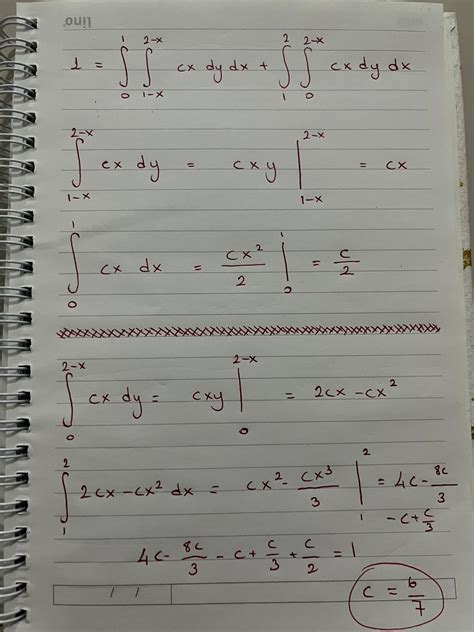 lino
1 = ∫₀¹ ∫₁₋ₓ²⁻ˣ cx dy dx + ∫₁² ∫₀²⁻ˣ cx dy dx
∫₁₋ₓ²⁻ˣ cx dy = cxy |₁₋ₓ²⁻ˣ = cx
∫₀¹ cx dx = cx²/2 |₀¹ = c/2
∫₀²⁻ˣ cx dy = cxy |₀²⁻ˣ = 2cx - cx²
∫₁² 2cx - cx² dx = cx² - cx³/3 |₁² = 4c - 8c/3
- c + c/3
4c - 8c/3 - c + c/3 + c/2 = 1
/ /
c = 6/7